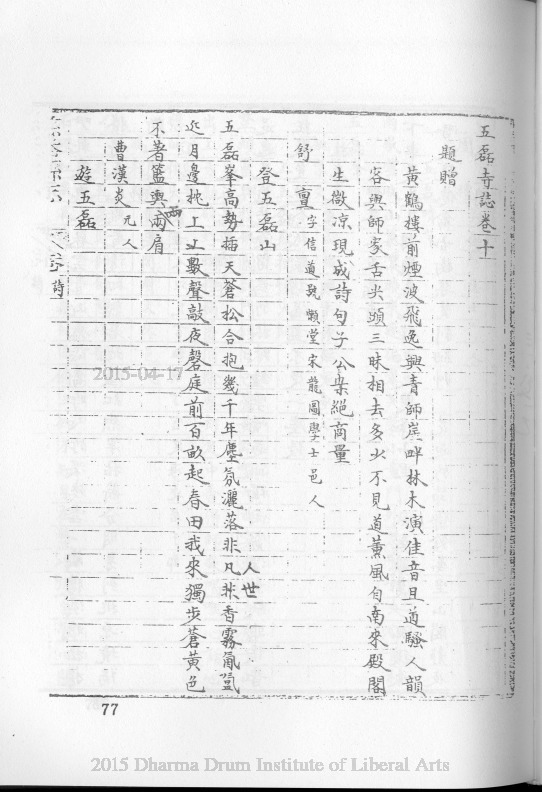 五磊寺誌卷十
題贈
黃鶴樓前煙波飛逸興青師崖畔林木演佳音且道騷人韻
容與師家舌尖頭三昧相去多少不見道薰風自南來殿閣
生微凉現成詩句子公案絕商量
舒亶字信道號懶堂宋龍圖學士邑人
登五磊山
五磊峯高勢插天蒼松合抱幾千年塵氛灑落非凡人世非香霧氤氳
近月邊枕上數聲敲夜磬庭前百畝起春田我來獨步蒼黃色
不著籃輿兩肩
曹漢炎元人
遊五磊
詩
2015-04-17
77
2015 Dharma Drum Institute of Liberal Arts